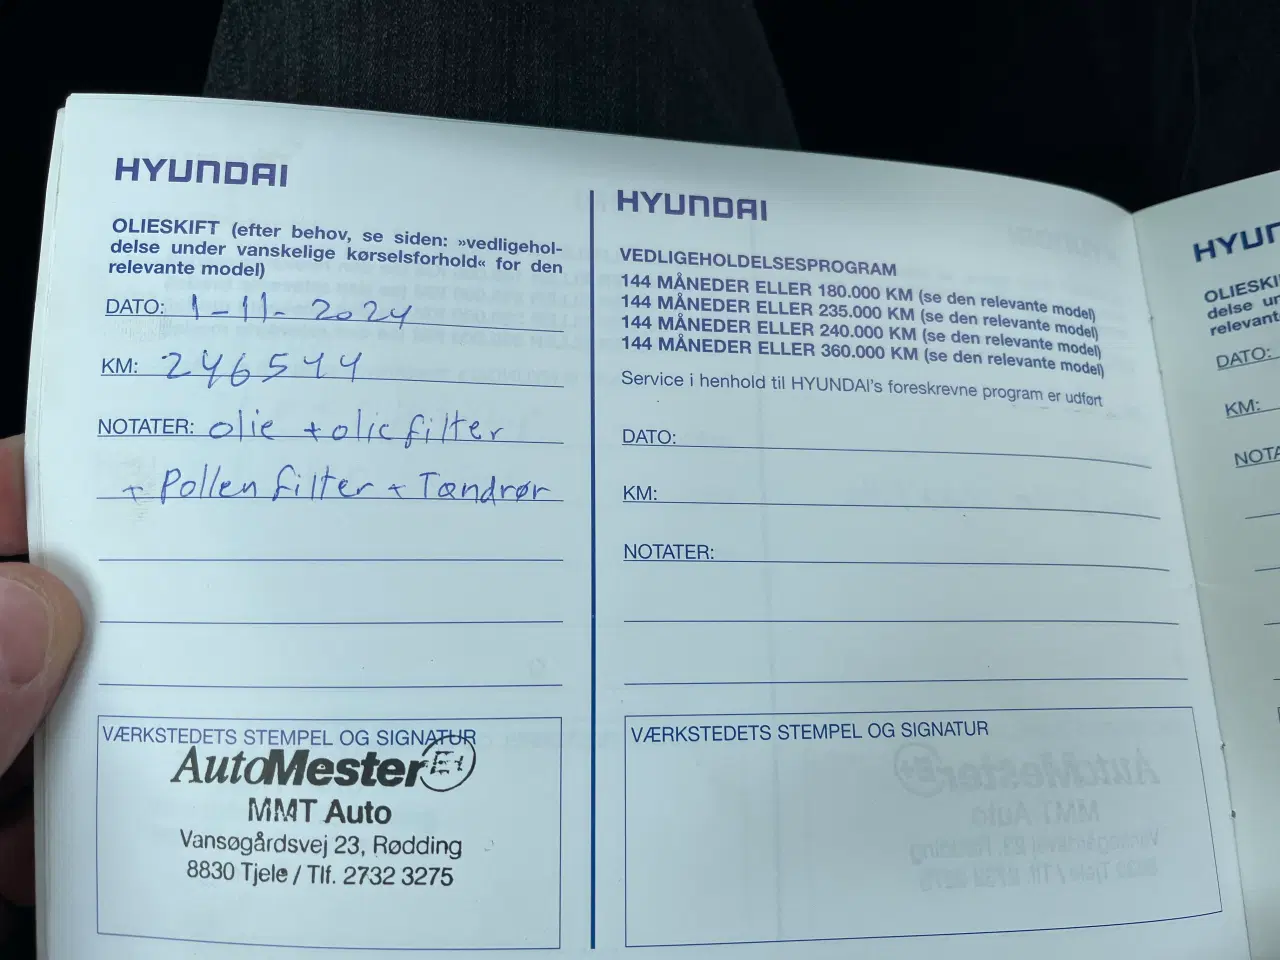 HYUNDAI
OLIESKIFT (efter behov, se siden: »vedligehol-
delse under vanskelige kørselsforhold« for den
relevante model)
DATO: 1-11-2024
KM: 246544
NOTATER: olie + olie filter
+ Pollen filter + Tændrør
VÆRKSTEDETS STEMPEL OG SIGNATUR
AutoMester
MMT Auto
Vansøgårdsvej 23, Rødding
8830 Tjele / Tlf. 2732 3275
HYUNDAI
VEDLIGEHOLDELSESPROGRAM
144 MÅNEDER ELLER 180.000 KM (se den relevante model)
144 MÅNEDER ELLER 235.000 KM (se den relevante model)
144 MÅNEDER ELLER 240.000 KM (se den relevante model)
144 MÅNEDER ELLER 360.000 KM (se den relevante model)
Service i henhold til HYUNDAI's foreskrevne program er udført
DATO:
KM:
NOTATER:
VÆRKSTEDETS STEMPEL OG SIGNATUR
HYUN
OLIESKI
delse un
relevant
DATO:
KM:
NOTA